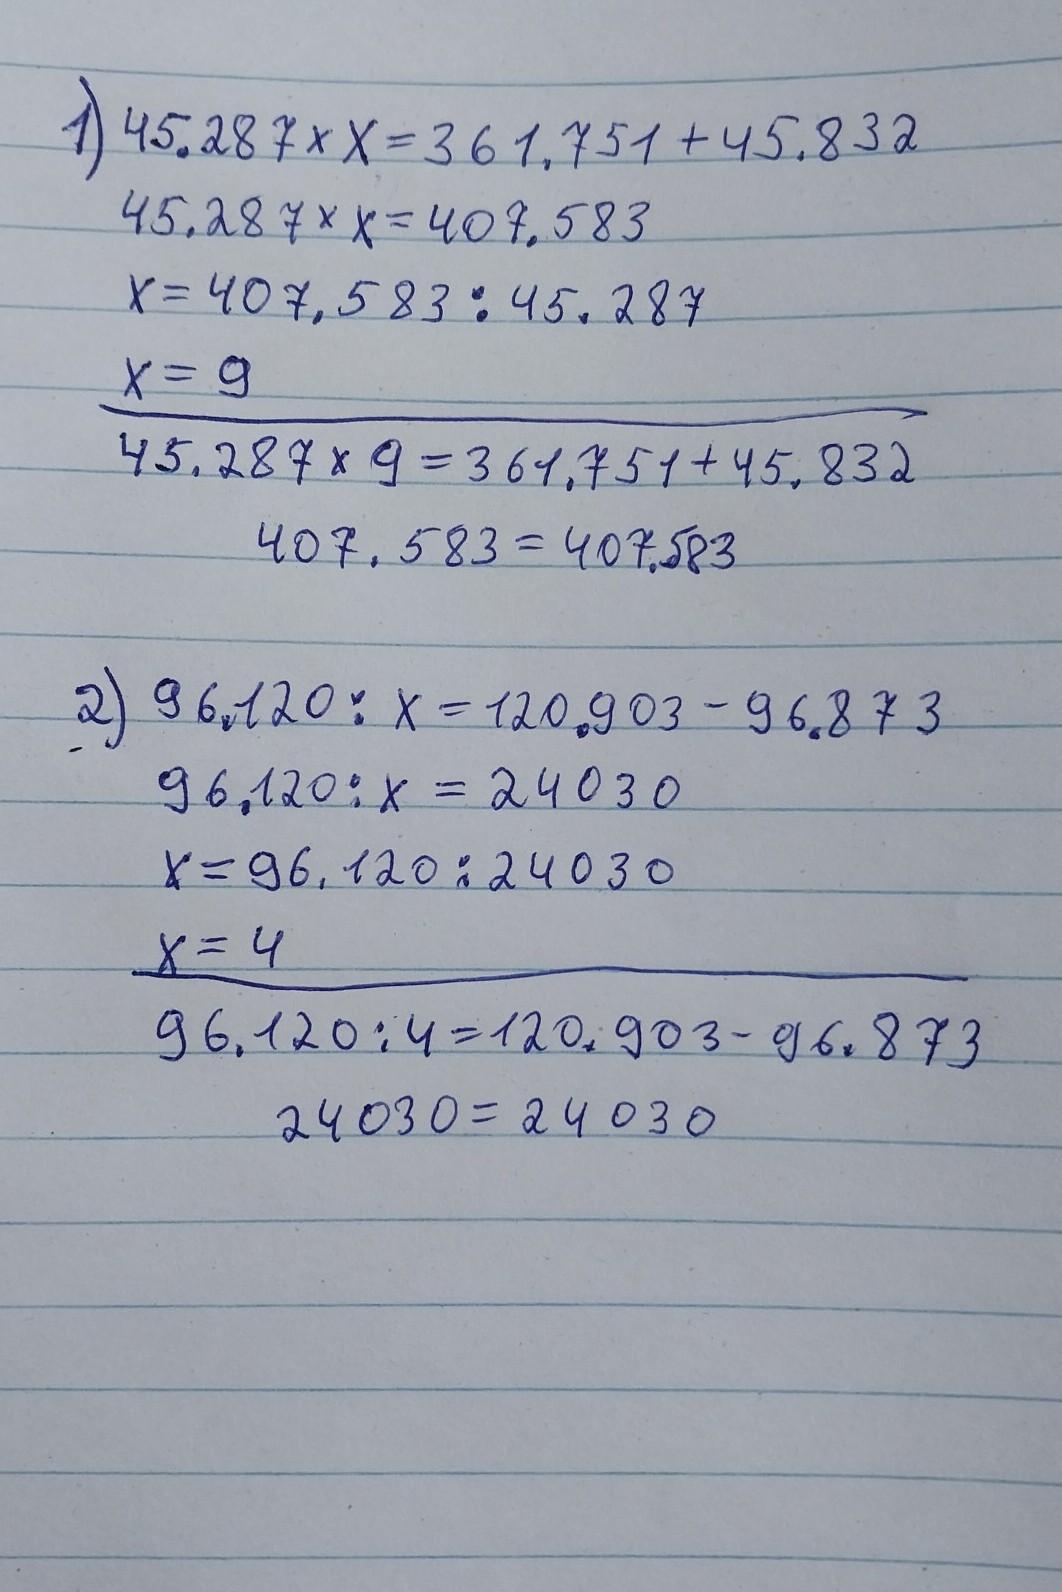 1) 45.287 x X = 361.751 + 45.832
45.287 x x = 407.583
x = 407.583 : 45.287
x = 9
45.287 x 9 = 361.751 + 45.832
407.583 = 407.583
2) 96.120 : x = 120.903 - 96.873
96.120 : x = 24030
x = 96.120 : 24030
x = 4
96.120 : 4 = 120.903 - 96.873
24030 = 24030